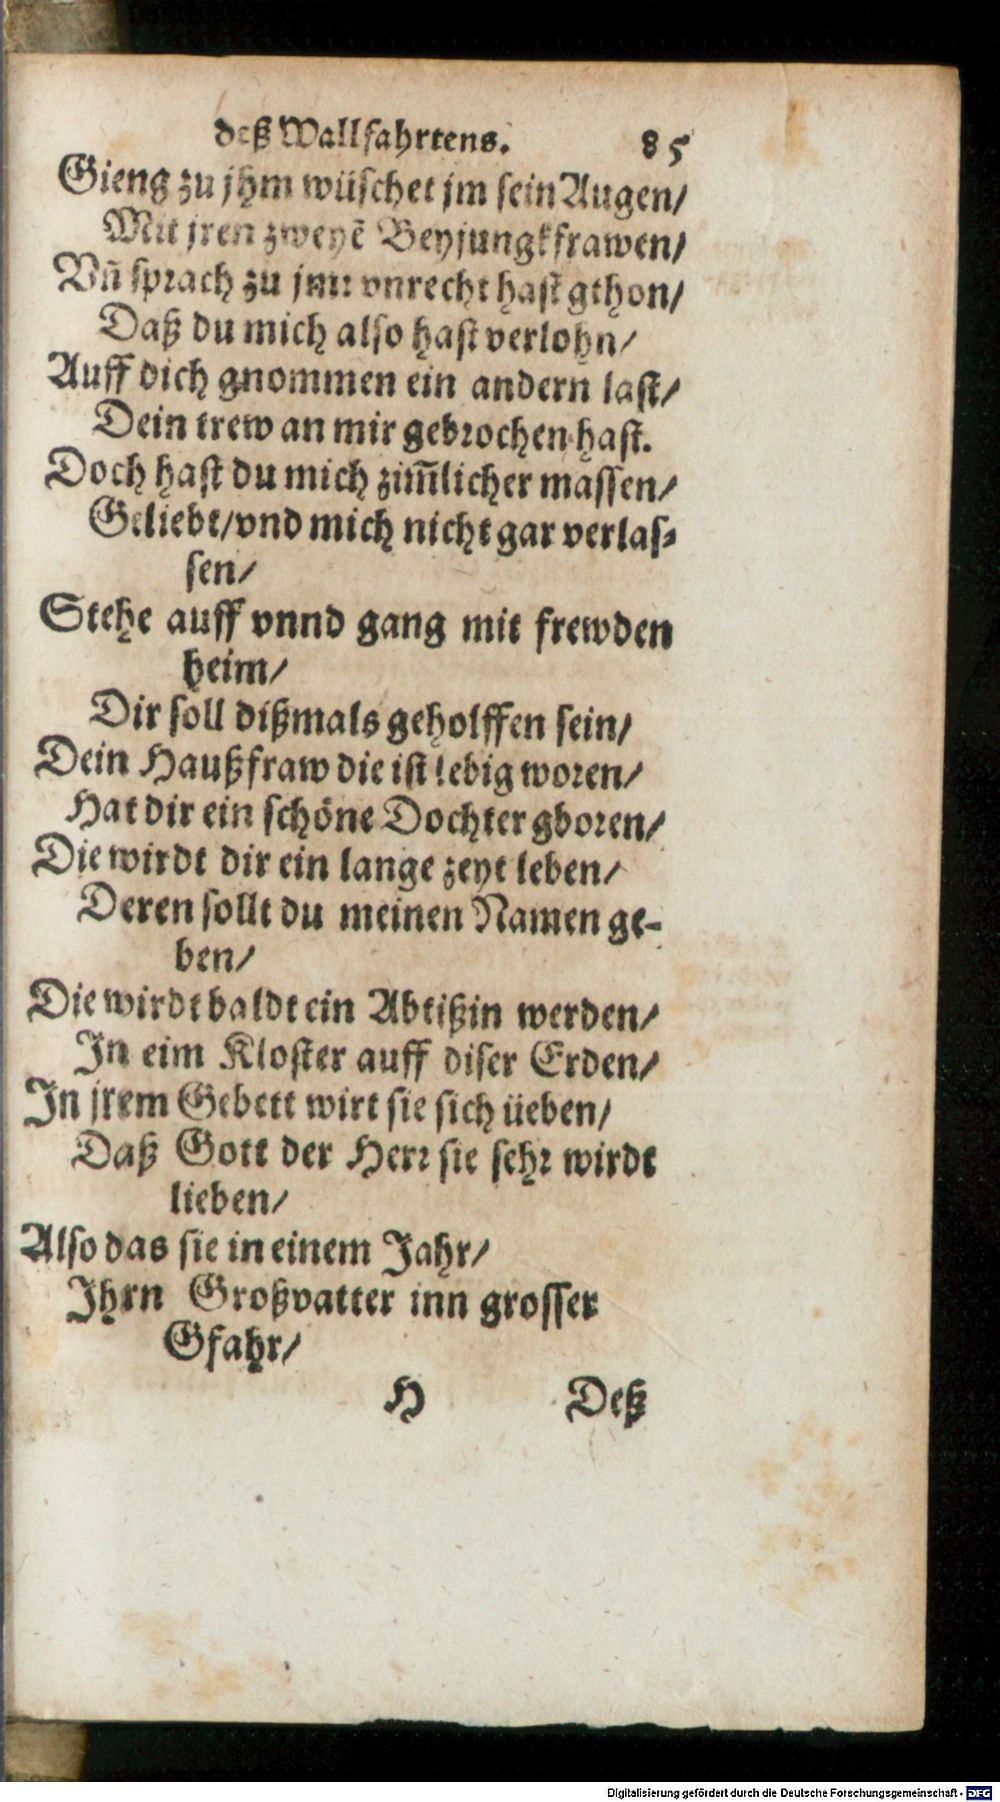 deß Wallfahrtens. 85
Gieng zu jhm wüschet jm sein Augen/
Mit jren zweyẽ Beyjungkfrawen/
Vñ sprach zu jm: vnrecht hast gthon/
Daß du mich also hast verlohn/
Auff dich gnommen ein andern last/
Dein trew an mir gebrochen hast.
Doch hast du mich zim̃licher massen/
Geliebt/vnd mich nicht gar verlas-
sen/
Stehe auff vnnd gang mit frewden
heim/
Dir soll dißmals geholffen sein/
Dein Haußfraw die ist lebig woren/
Hat dir ein schöne Dochter gboren/
Die wirdt dir ein lange zeyt leben/
Deren sollt du meinen Namen ge-
ben/
Die wirdt baldt ein Abtißin werden/
In eim Kloster auff diser Erden/
In jrem Gebett wirt sie sich üeben/
Daß Gott der Herr sie sehr wirdt
lieben/
Also das sie in einem Jahr/
Ihrn Großvatter inn grosser
Gfahr/
H Deß
Digitalisierung gefördert durch die Deutsche Forschungsgemeinschaft - DFG